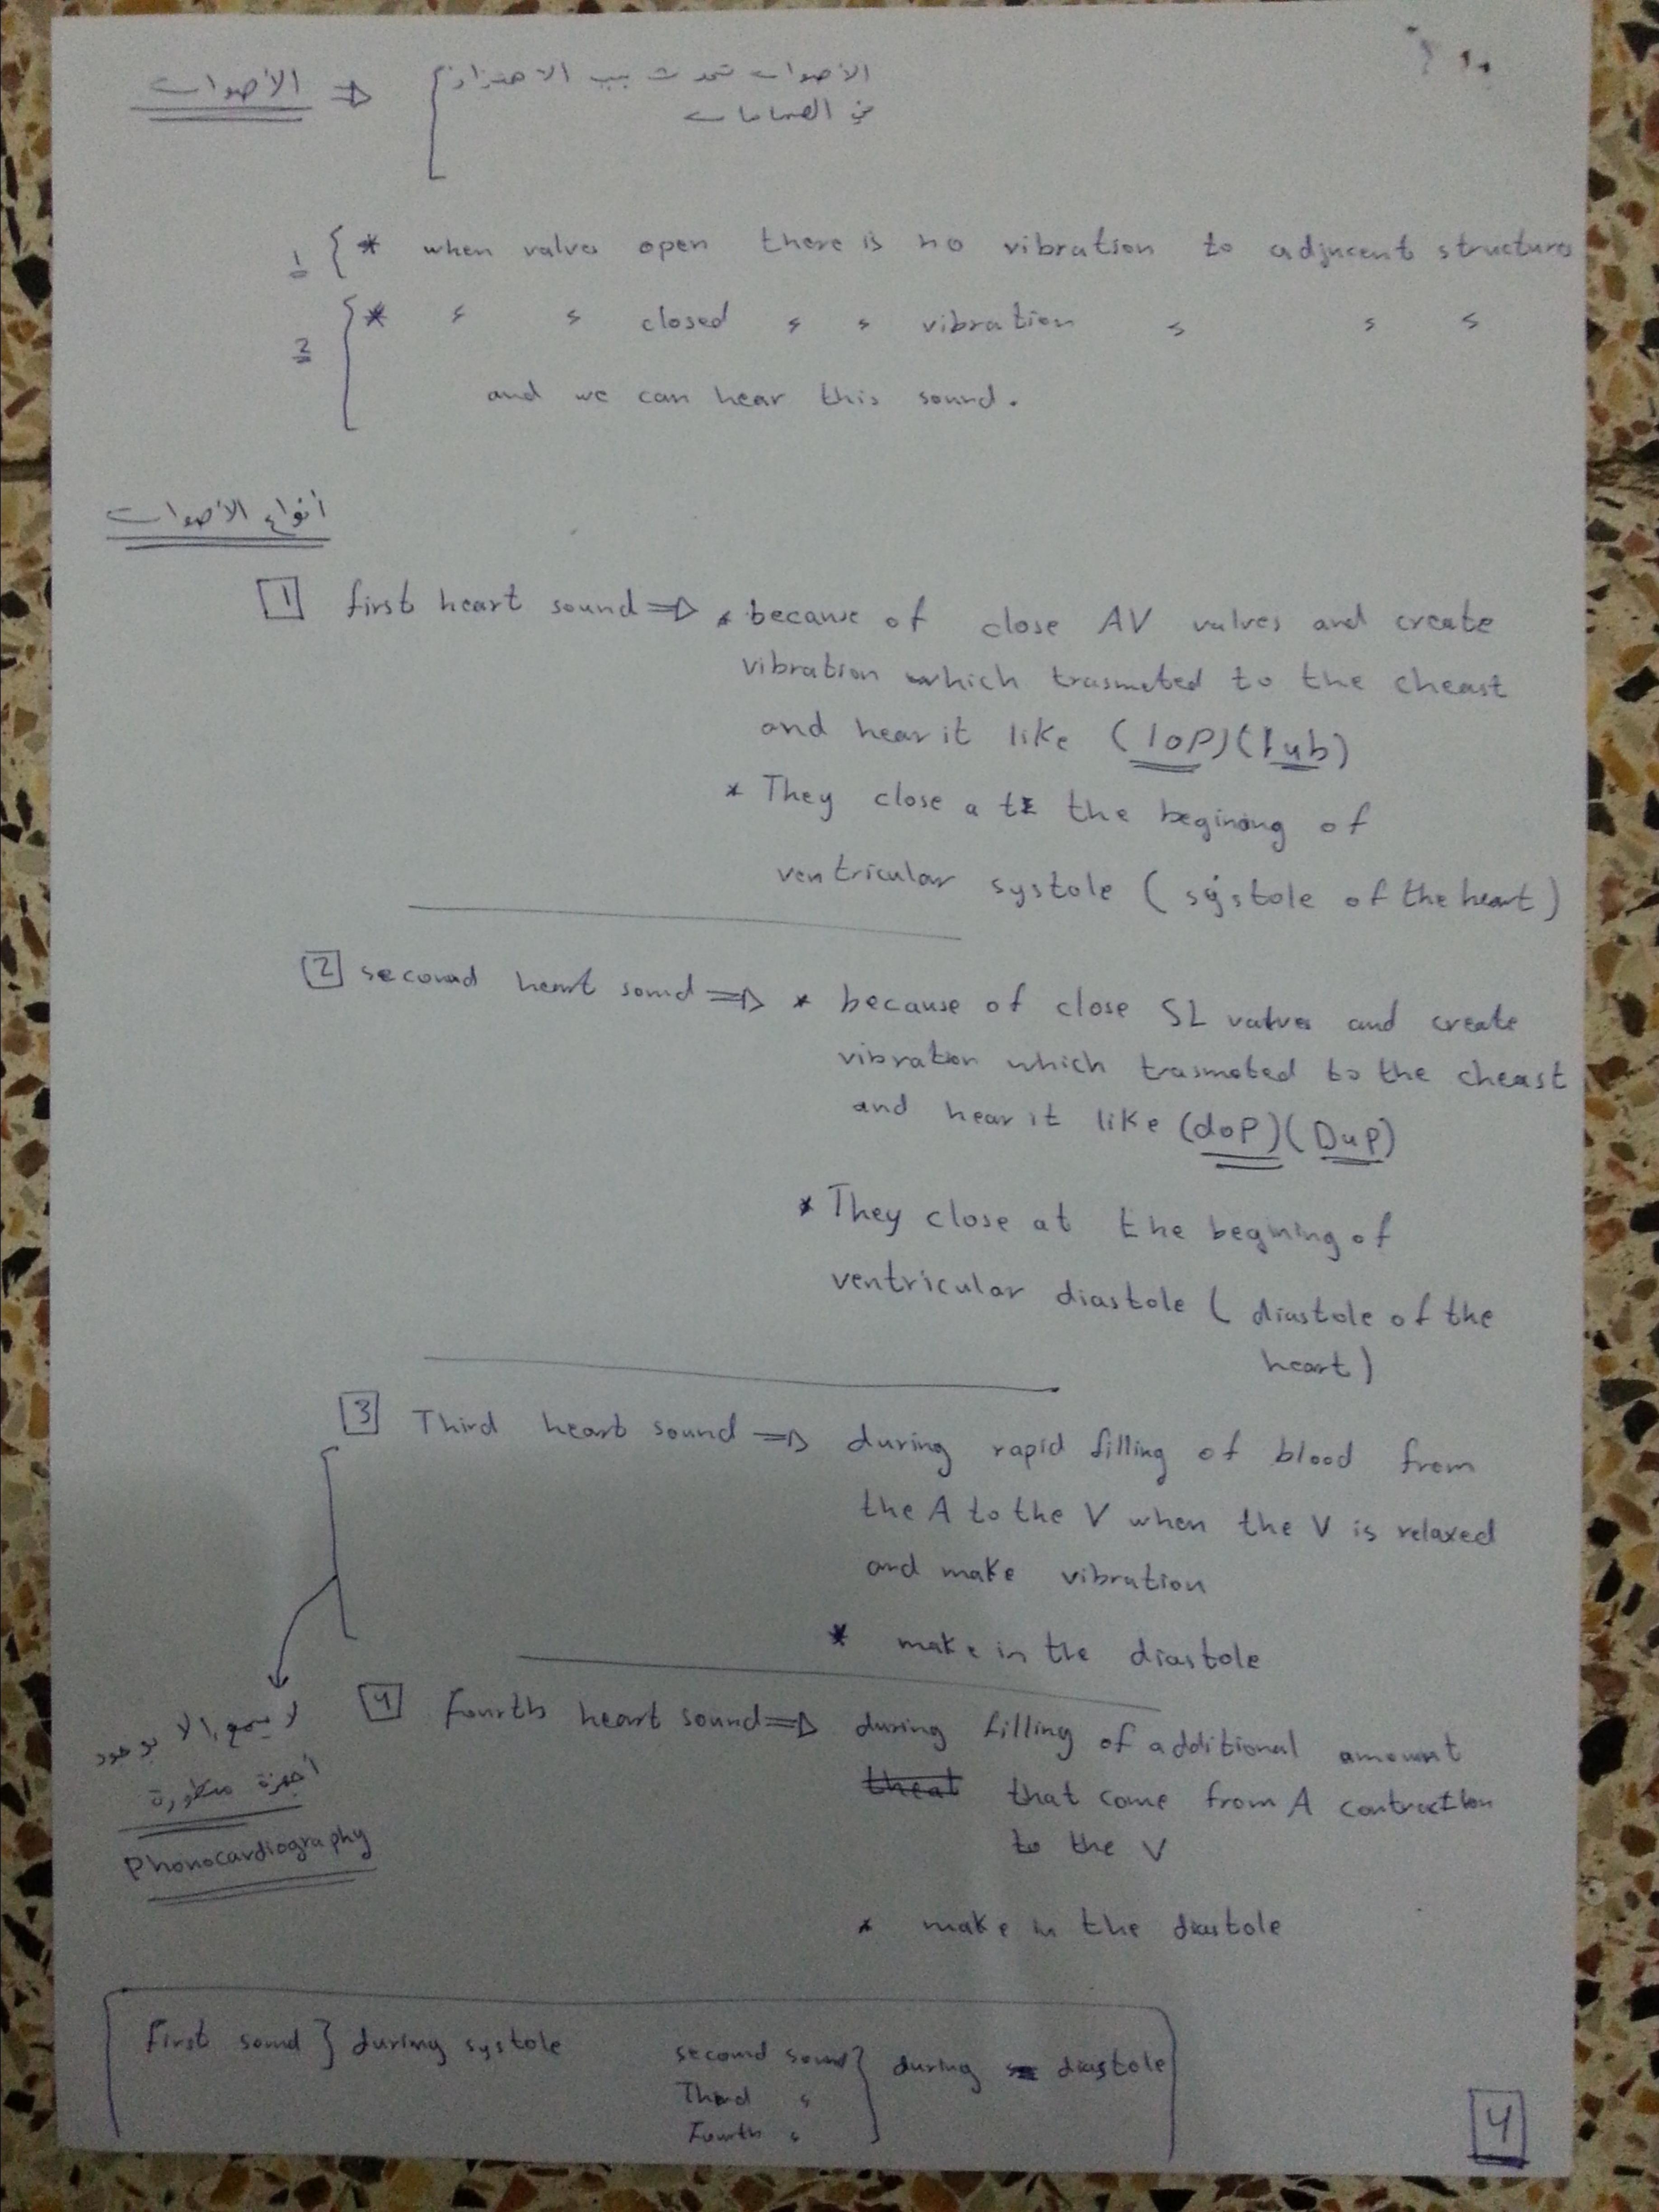 الأصوات ⇒ { الأصوات تحدث بسبب الاهتزاز
في الصمامات
1 { * when valves open there is no vibration to adjucent structures
2 { * " " closed " " vibration " " "
and we can hear this sound.
أنواع الأصوات
1 first heart sound ⇒ * because of close AV valves and create
vibration which trasmeted to the cheast
and hear it like (lop) (lub)
* They close at the begining of
ventricular systole (systole of the heart)
2 second heart sound ⇒ * because of close SL valves and create
vibration which trasmeted to the cheast
and hear it like (dop) (Dup)
* They close at the begining of
ventricular diastole (diastole of the
heart)
3 Third heart sound ⇒ during rapid filling of blood from
the A to the V when the V is relaxed
and make vibration
* make in the diastole
لا يسمع إلا بوجود
أجهزة متطورة
Phonocardiography
4 fourth heart sound ⇒ during filling of additional amount
that come from A contraction
to the V
* make in the diastole
first sound } during systole
second sound } during diastole
Third "
Fourth "
4